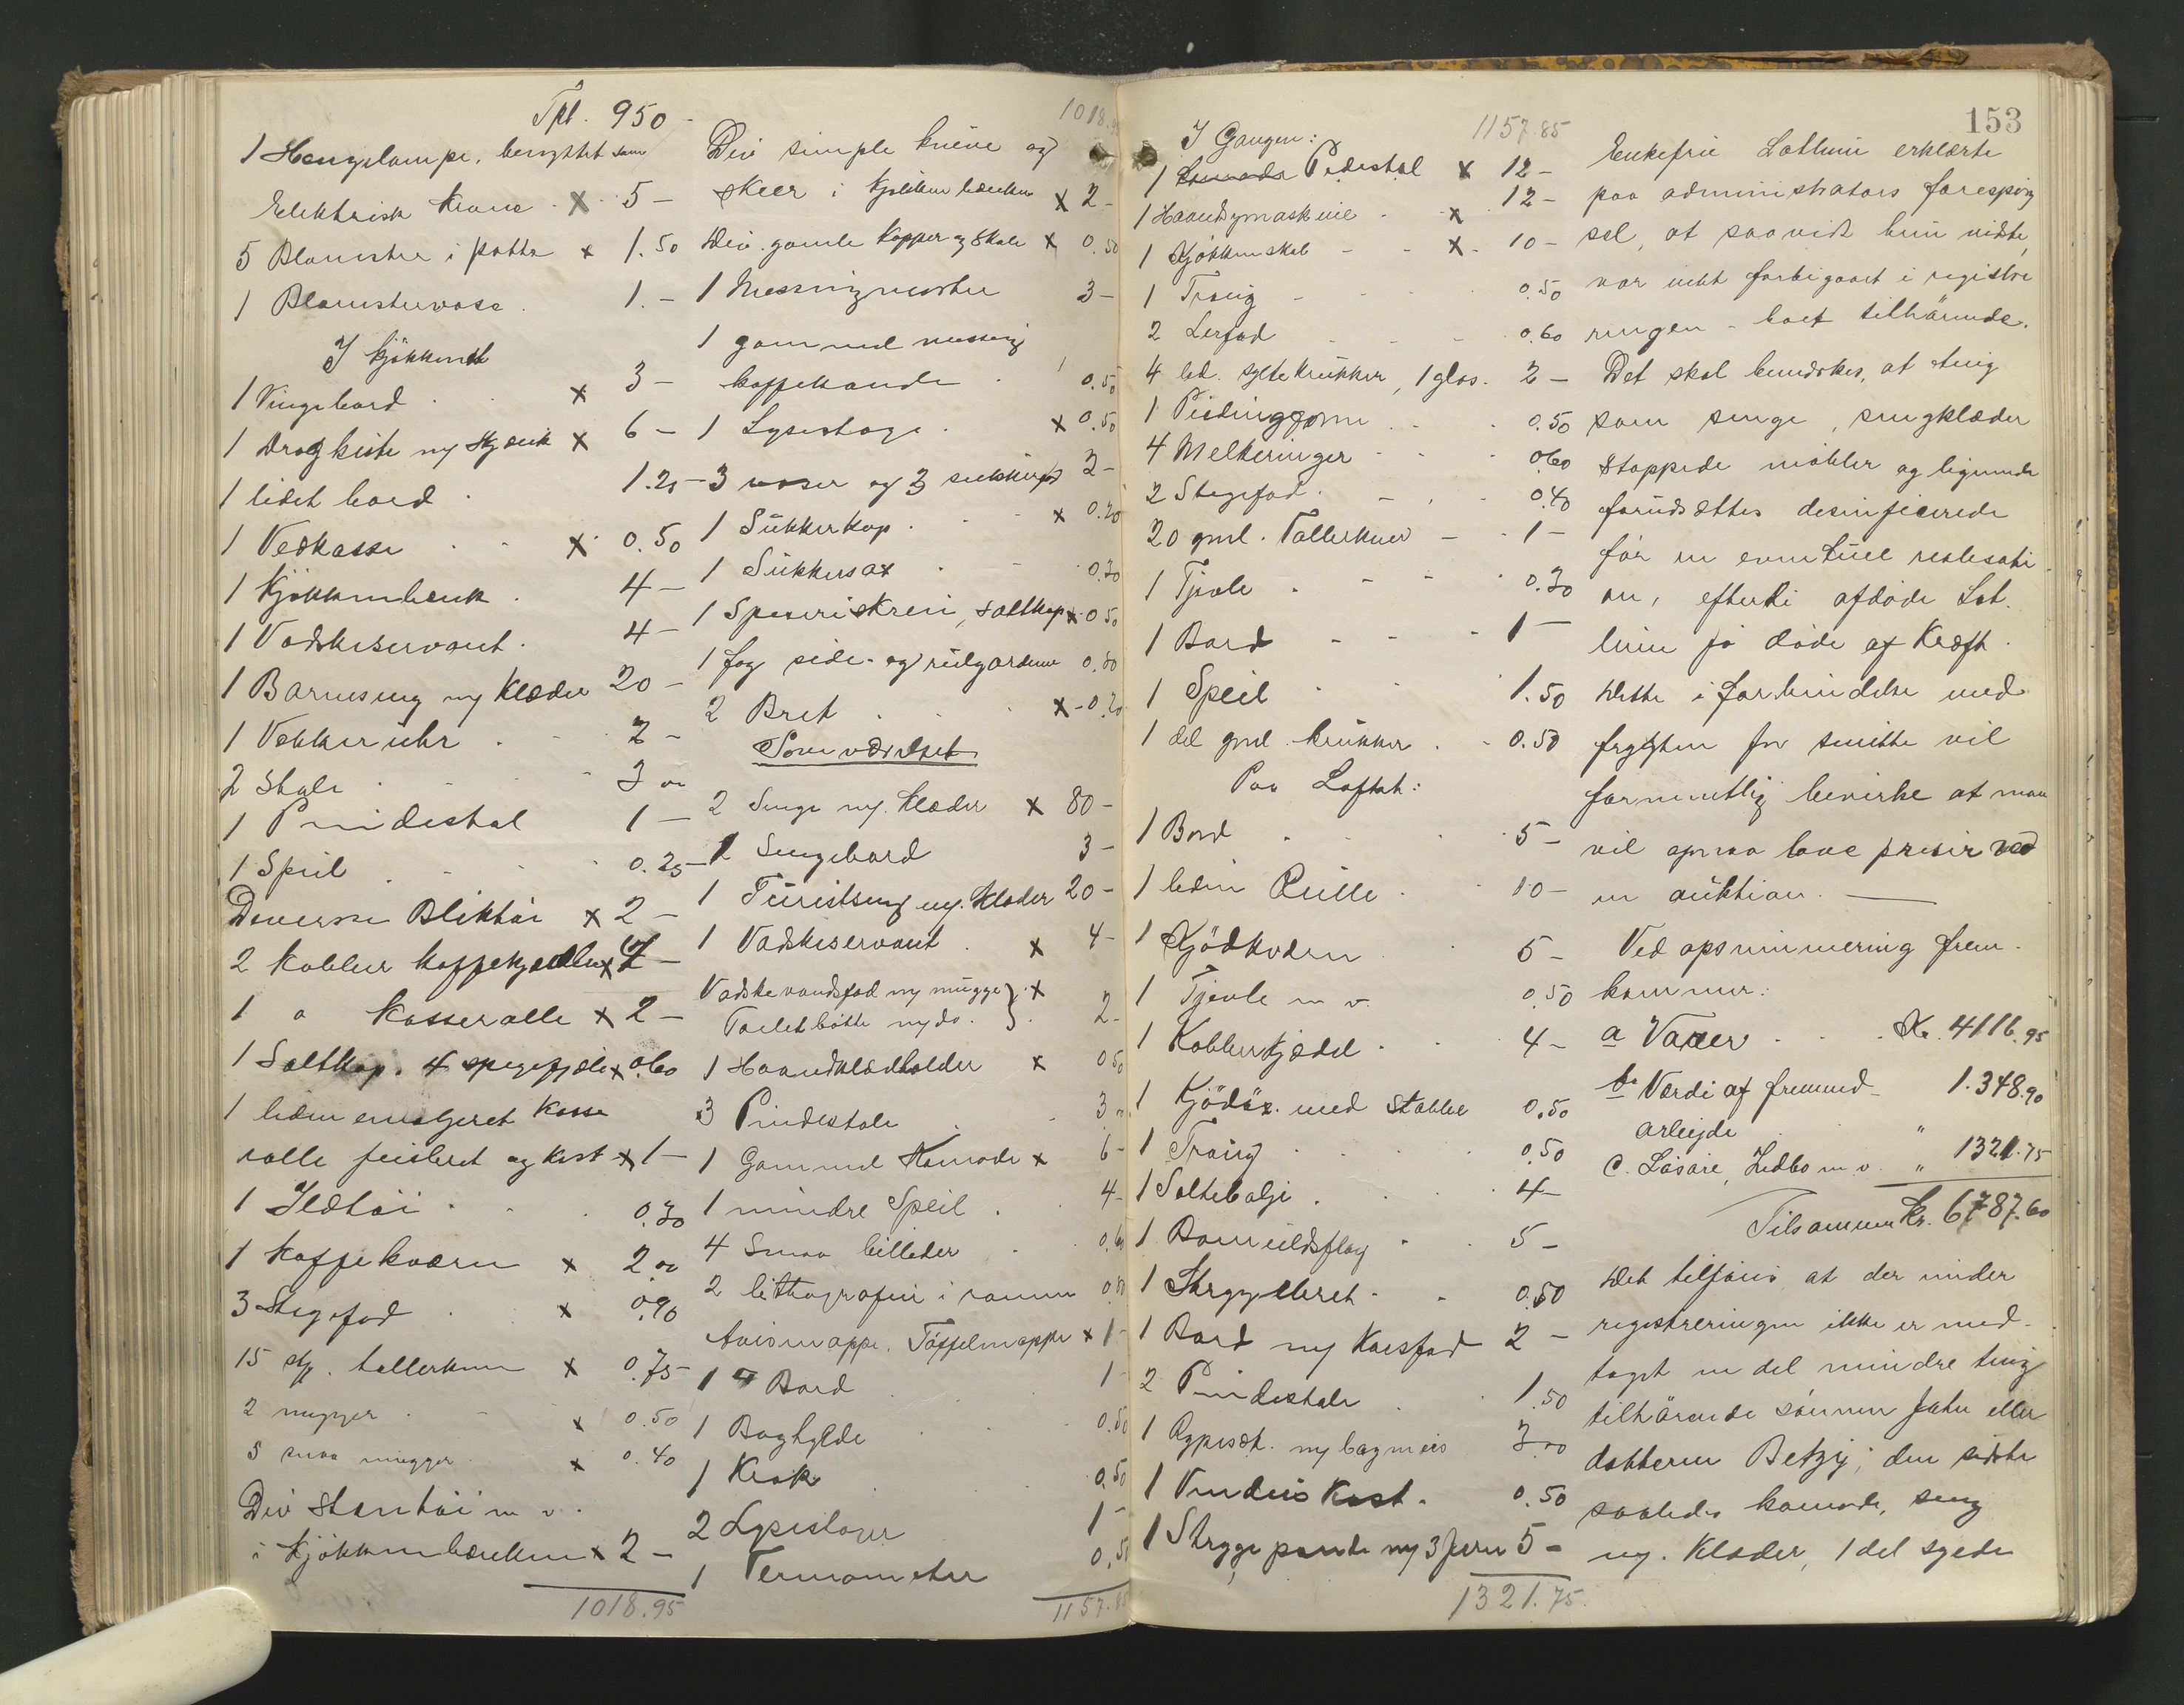 Tpt. 950 -
1 Hengelampe, benyttet som
Elektrisk Krone x 5 -
5 Blomster i potte x 1.50
1 Blomstervase 1. -
I kjøkkenet
1 Vingebord x 3 -
1 Dragkiste m/ Skjænk x 6 -
1 lidet bord 1.25
1 Vedkasse x 0.50
1 Kjøkkenbenk 4 -
1 Vadskeservant 4 -
1 Barneseng m/ Klæder 20 -
1 Vekkeruhr 2 -
2 Stole 3 00
1 Pindestol 1 -
1 Speil 0.25
Deverse Bliktøi x 2 -
2 Kobber kaffekjedler x
1 " Kasserolle x 2 -
1 Saltkop. 4 spegefjæle x 0.60
1 liden emaljeret Kasse
rolle feiebret og kost x 1 -
1 Ildtøi 0.30
1 Kaffekværn x 2.00
3 Stegefad x 0.90
15 stk. tallerkener x 0.75
2 mugger x 0.50
5 smaa mugger x 0.40
Div Stentøi m v.
i Kjøkkenbænken x 2 -
1018.95
1018.95
Div simple knive og
skeer i kjøkkenbænken x 2 -
Div. gamle Kopper og Skale x 0.50
1 Messingmorter 3 -
1 gammel messing
kaffekande 0.50
1 Lysestage x 0.50
3 vaser og 3 2 -
1 Sukkerkop x 0.20
1 Sukkersax 0.30
1 Speseriskrin, saltkop x 0.50
1 fag side- og rulgardiner 0.80
2 Bret x - 0.20
Soveværelset
2 Senge m/. Klæder x 80 -
1 Sengebord 3 -
1 Turistseng m/. Klæder 20 -
1 Vadskeservant x 4 -
Vadskevandsfad m/ mugge } x
Toiletbøtte m/ do. } 2 -
1 Haandklædholder x 0.50
3 Pindestole 3
1 Gammel Komode x 6 -
1 mindre Speil 4 -
4 Smaa billeder 0.60
2 lithografier i ramme
Avismappe. Tøffelmappe x 1 -
1 Bord 1 -
1 Boghylde 0.50
1 Krak 0.50
2 Lysestager 1 -
1 Termometer 0.50
1157.85
I Gangen: 1157.85
1 Pedestal x 12 -
1 Haandsymaskine x 12 -
1 Kjøkkenskab x 10 -
1 Traug 0.50
2 Lerfad 0.60
4 led. syltekrukker, 1 glas. 2 -
1 Pudingform 0.50
4 Melkeringer 0.60
2 Stegefad 0.40
20 gml. Tallerkner 1 -
1 Fjæle 0.30
1 Bord 1 -
1 Speil 1.50
1 del gml. krukker 0.50
Paa Loftet:
1 Bord 5 -
1 liden Rulle 10 -
1 Kjødkværn 5 -
1 Fjæle m v. 0.50
1 Kobberkjedel 4 -
1 Kjødøx. med Stabbe 0.50
1 Traug 0.50
1 Saltebalje 4 -
1 Bomuldsflag 5 -
1 Strygebret 0.50
1 Bord m/ Karsfad 2 -
2 Pindestole 1.50
1 Rypesæk. m/ bagmeis 3.00
1 Vinduskost 0.50
1 Stryge m/ 3 Jern 5 -
1321.75.
153
Enkefru Lothein erklærte
paa administrators forespørg
sel, at saavidt hun vidste,
var intet forbigaaet i registre
ringen - boet tilhørende.
Det skal bemærkes, at ting
som senge, sengklæder
stoppede møbler og lignende
forudsættes desinficerede
før en eventuel realisati
on, efterdi afdøde Lot.
hein jo døde af Kræft.
Dette i forbindelse med
frygten for smitte vil
formentlig bevirke at man
vil opnaa lave priser ved
en auktion. —
Ved opsummering frem-
kommer:
a Varer Kr. 4116.95
b. Værdi af fremmed- 1.348.90
arbeide
c. Løsøre, Indbo m v. " 1321.75
Tilsammen Kr. 6787.60
Det tilføies at der under
registreringen ikke er med-
taget en del mindre ting
tilhørende sønnen eller
datteren Betzy; den sidste
saaledes komode, seng
m/. Klæder, 1 del syede